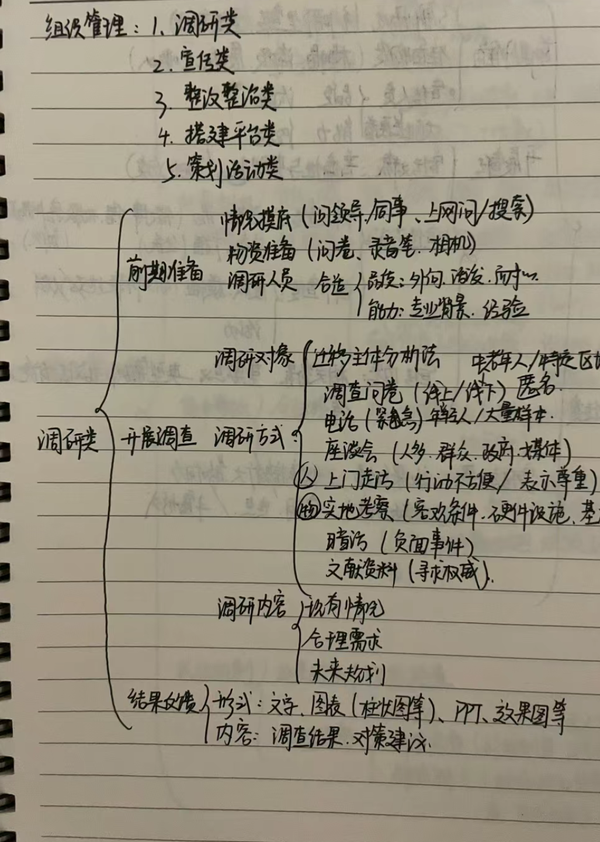 组织管理：1. 调研类
2. 宣传类
3. 整改整治类
4. 搭建平台类
5. 策划活动类
前期准备 情况摸底（问领导/同事、上网问/搜索）
物资准备（问卷、录音笔、相机）
调研人员 合适 品质：外向、活泼、耐心
能力：专业背景、经验
调研对象 迁移主体分析法 中老年人/特定区
调研类 开展调查 调研方式 调查问卷（线上/线下）匿名
电话 年轻人/大量样本
座谈会（人多、群众、政府、媒体）
人 上门走访（行动不便/表示尊重）
物 实地考察（客观条件、硬件设施、基
暗访（负面事件）
文献资料（寻求权威）
调研内容 现有情况
合理需求
未来规划
结果反馈 形式：文字、图表（柱状图等）、PPT、效果图等
内容：调查结果、对策建议